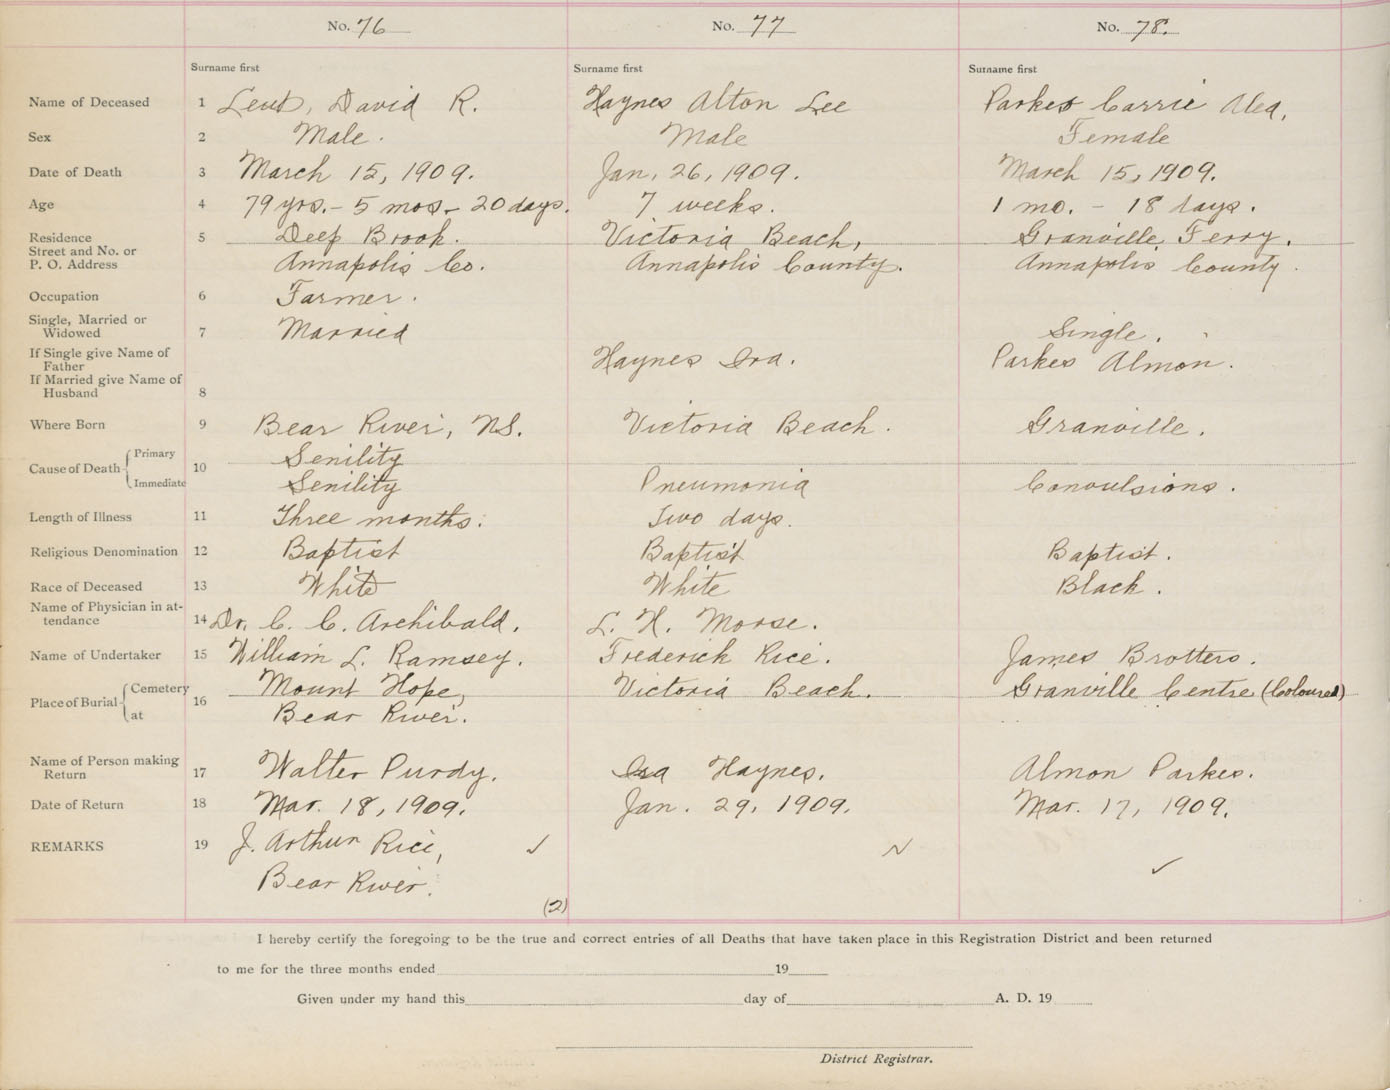 No. 76 No. 77 No. 78.
Surname first Surname first Surname first
Name of Deceased 1 Lent, David R. Haynes Alton Lee Parkes Carrie Alea.
Sex 2 Male. Male Female
Date of Death 3 March 15, 1909. Jan, 26, 1909. March 15, 1909.
Age 4 79 yrs. - 5 mos - 20 days. 7 weeks. 1 mo. - 18 days.
Residence 5 Deep Brook. Victoria Beach, Granville Ferry.
Street and No. or
P. O. Address Annapolis Co. Annapolis County. Annapolis County.
Occupation 6 Farmer.
Single, Married or
Widowed 7 Married Single.
If Single give Name of
Father Haynes Ira. Parkes Almon.
If Married give Name of
Husband 8
Where Born 9 Bear River, NS. Victoria Beach. Granville.
Primary Senility
Cause of Death 10
Immediate Senility Pneumonia Convulsions.
Length of Illness 11 Three months. Two days.
Religious Denomination 12 Baptist Baptist Baptist.
Race of Deceased 13 White White Black.
Name of Physician in at-
tendance 14 Dr. C. C. Archibald. L. H. Morse.
Name of Undertaker 15 William L. Ramsey. Frederick Rice. James Brotters.
Cemetery Mount Hope, Victoria Beach. Granville Centre (Coloured)
Place of Burial 16
at Bear River.
Name of Person making
Return 17 Walter Purdy. Ira Haynes. Almon Parkes.
Date of Return 18 Mar. 18, 1909. Jan. 29, 1909. Mar. 17, 1909.
REMARKS 19 J. Arthur Rice,
Bear River.
(2)
I hereby certify the foregoing to be the true and correct entries of all Deaths that have taken place in this Registration District and been returned
to me for the three months ended 19
Given under my hand this day of A. D. 19
District Registrar.